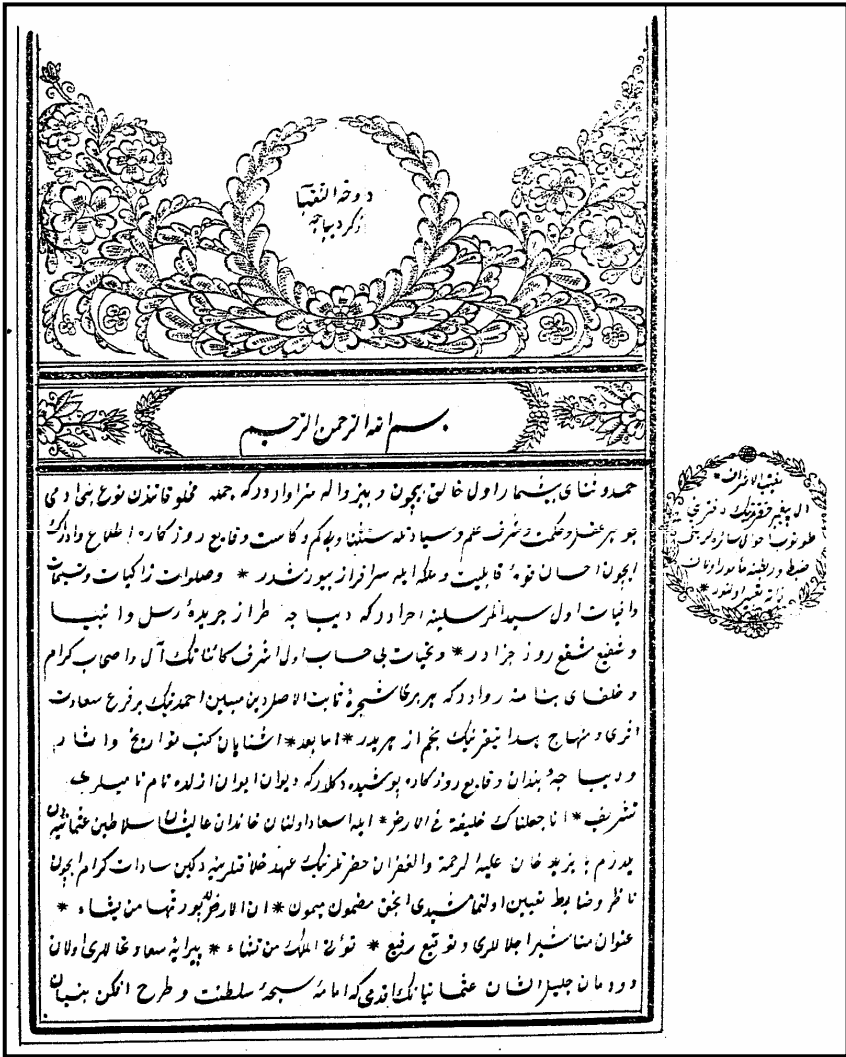 دوحة النقبا
ذكر ديباجه
بسم الله الرحمن الرحيم
حمد و ثنای بیشمار اول خالق بیچون و بیزواله سزاواردركه جمله مخلوقاتندن نوع بنی آدمی
جوهر عقل و حكمت و شرف علم و سیادتله و وقایع روزكاره اطلاع و ادراك
ایچون احسان قوۀ قابلیت و ملكه ایله سرافراز بیورمشدر * و صلوات زاكیات و تسلیمات
وانیات اول سید المرسلینه احرادركه دیباجه طراز جریدۀ رسل و انبیا
و شفیع مشفع روز جزادر * و تحیات بی حساب اول اشرف كائناتك آل و اصحاب كرام
و خلفای رواдركه هر بری شجرۀ ثابت الاصل دین مبین احمدینك بر فرع سعادت
و منهاج * اما بعد * اشنایان كتب تواریخ و اثار
و دیباجه بندان وقایع روزكاره پوشیده دكلدركه دیوان ایوان ازلده نام نامیلری
تشریف * انا جعلناك خلیفة فی الارض * ایله اسعاد اولنان خاندان عالیشان سلاطین عثمانیدن
یلدرم بایزید خان علیه الرحمة والغفران حضرتلرینك عهد خلافتلرینه دكین سادات كرام ایچون
ناظر و ضابط تعیین اولنمامشیدی الحق مضمون میمون * ان الارض لله یورثها من یشاء *
عنوان مناشیر اجلاللری و توقیع رفیع * تؤتی الملك من تشاء * پیرایۀ اولان
دودمان جلیل الشان عثمانیانك اقدمی كه سبحۀ سلطنت و طرح افكن بنیان
نقیب الاشراف *
آل پیغمبر حضرتنك دفترینی
طوتوب احوال سائره لرینی
ضبط و ربطنه مأمور اولان
ذاته تعبیر اولنور *